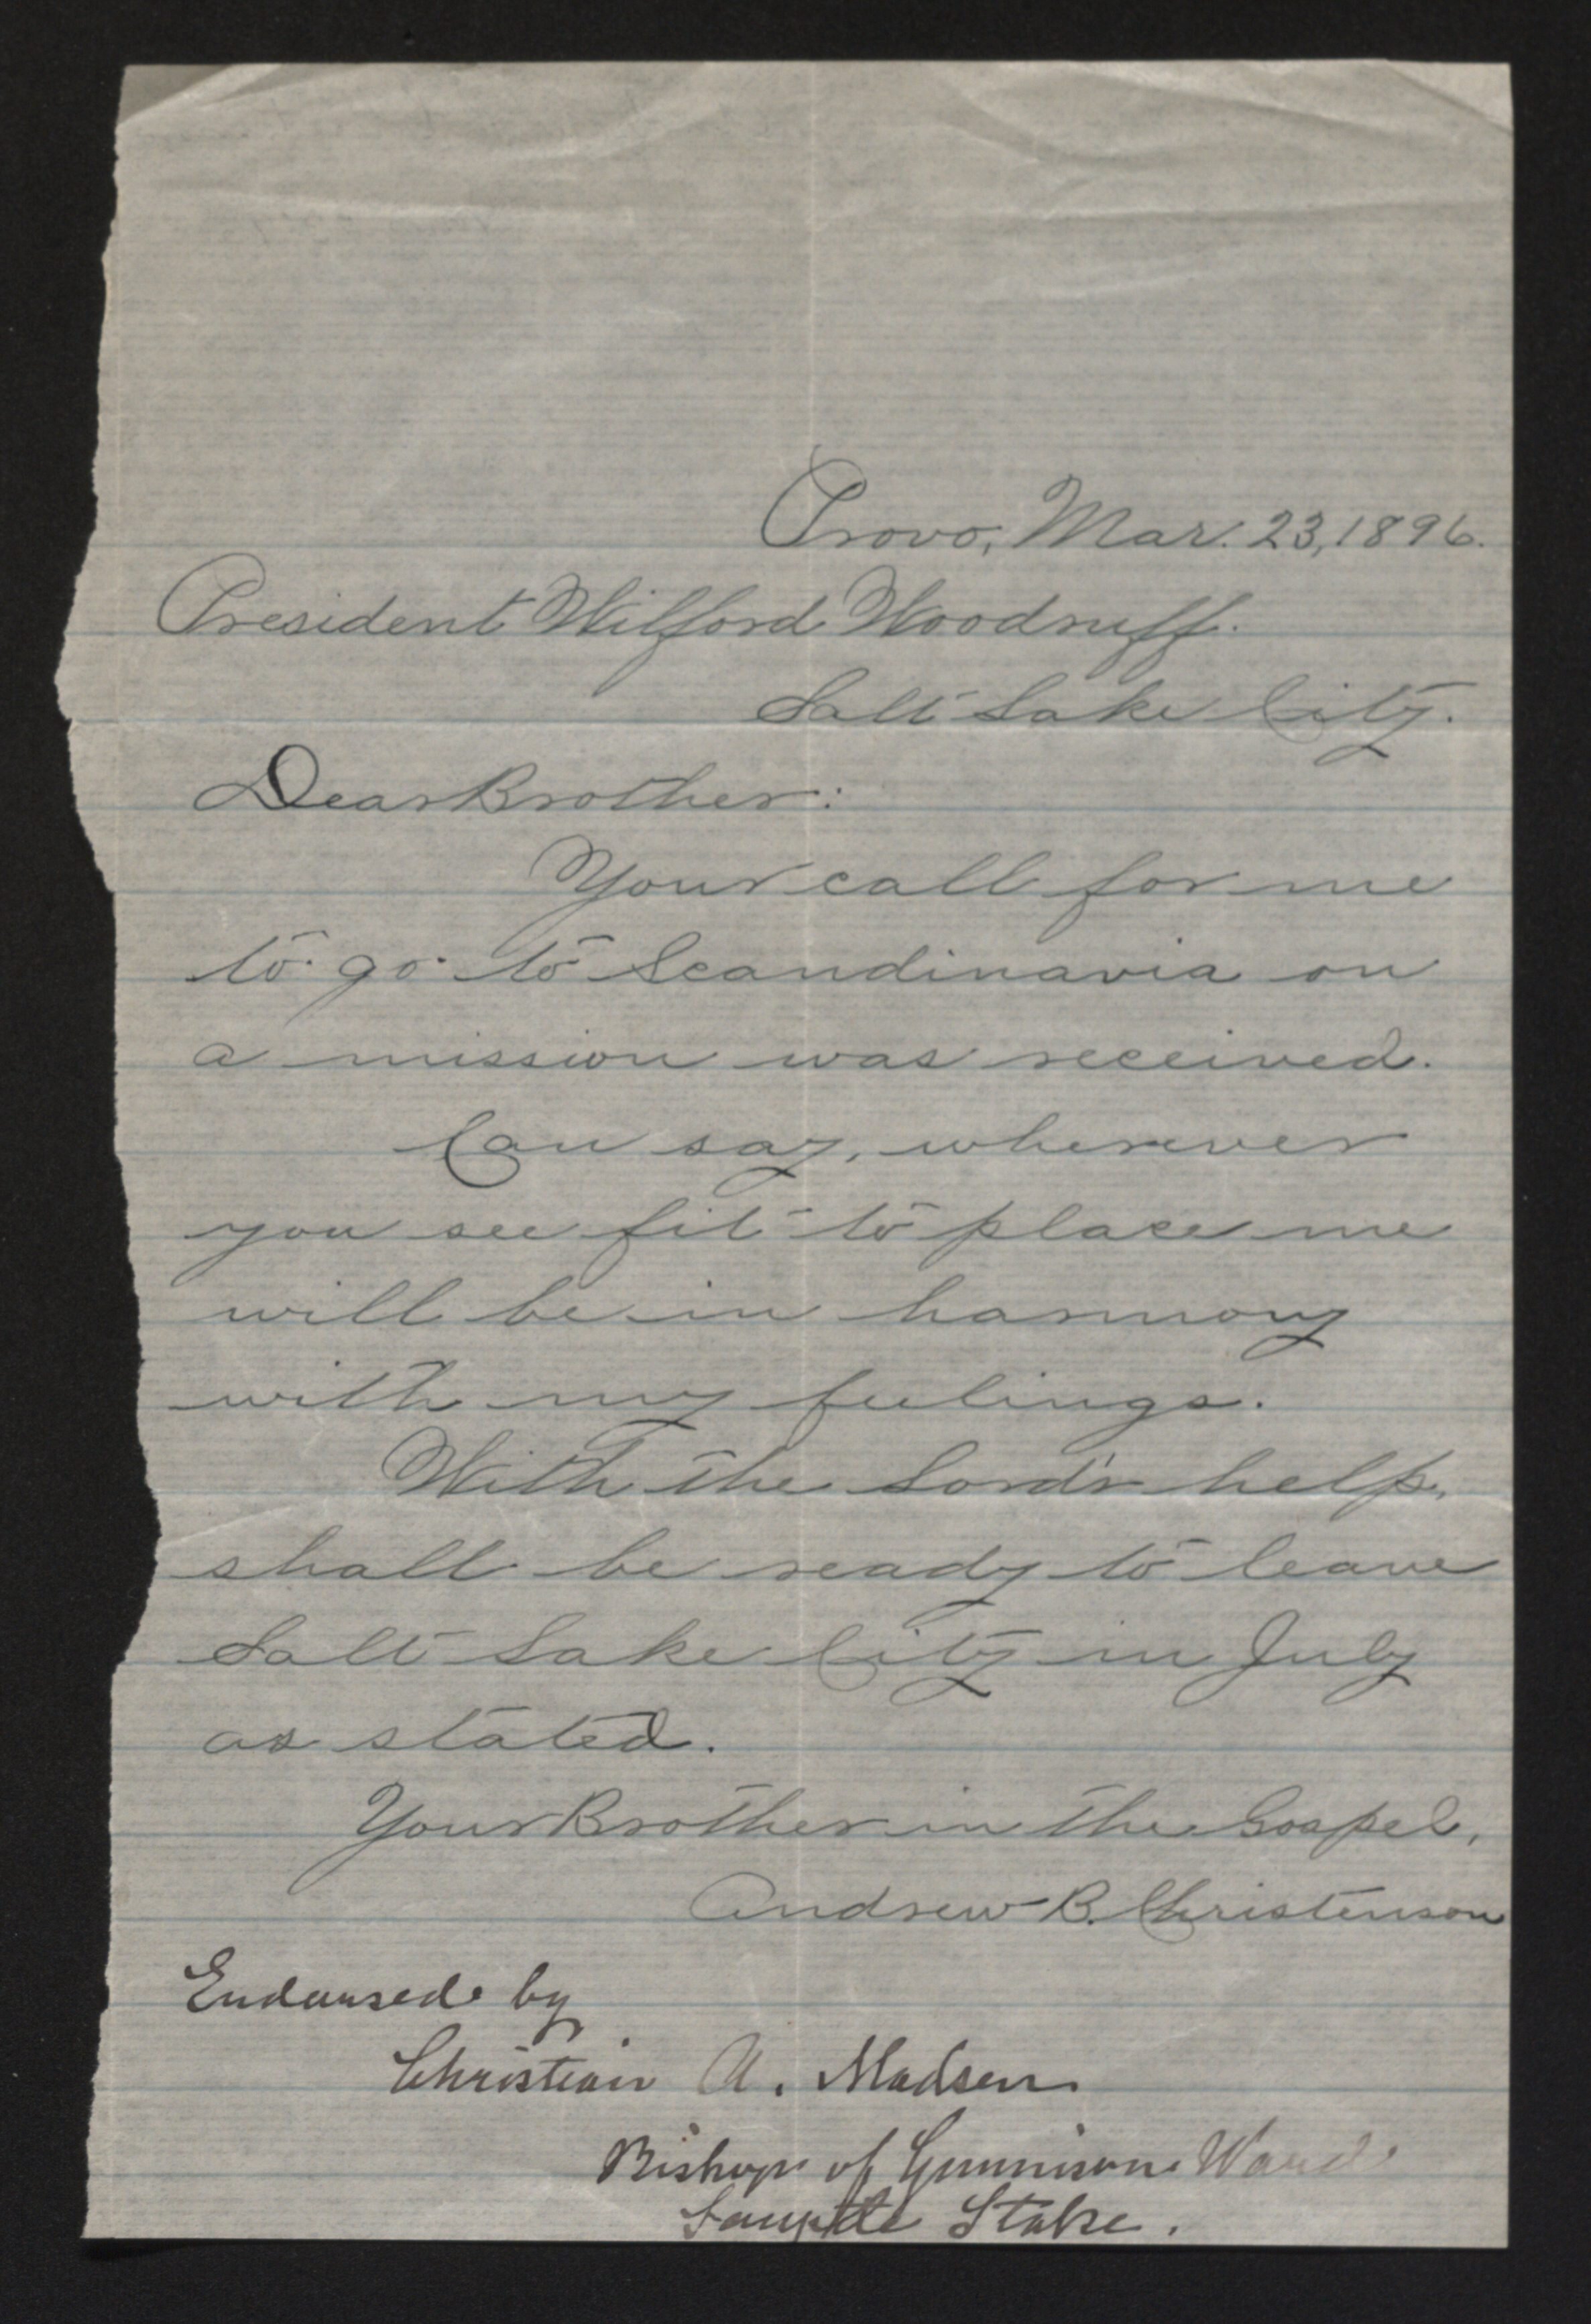 Provo, Mar. 23, 1896.
President Wilford Woodruff.
Salt Lake City.
Dear Brother:
Your call for me
to go to Scandinavia on
a mission was received.
Can say, wherever
you see fit to place me
will be in harmony
with my feelings.
With the Lord's help,
shall be ready to leave
Salt Lake City in July
as stated.
Your Brother in the Gospel,
Andrew B. Christenson
Endorsed by
Christian A. Madsen
Bishop of Gunnison Ward
Sanpete Stake.